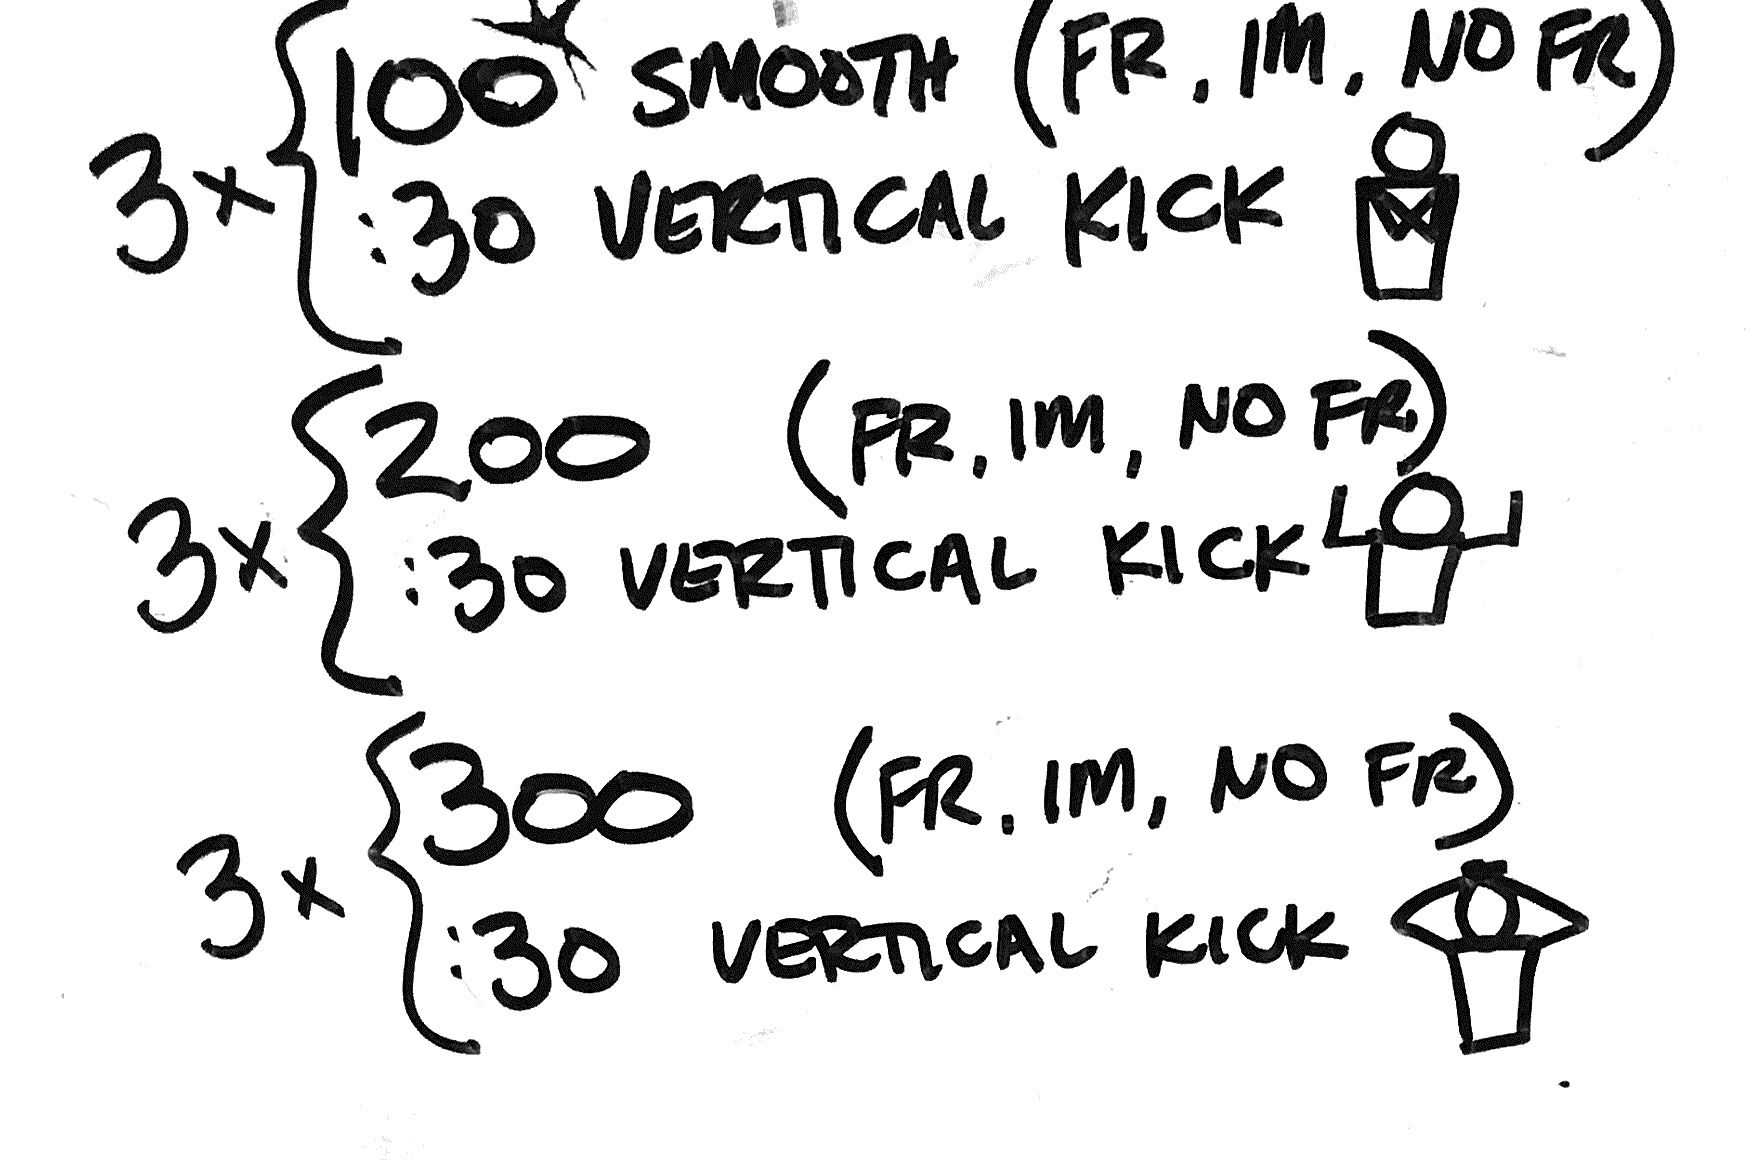 3x { 100 SMOOTH (FR, IM, NO FR)
:30 VERTICAL KICK
3x { 200 (FR, IM, NO FR)
:30 VERTICAL KICK
3x { 300 (FR, IM, NO FR)
:30 VERTICAL KICK